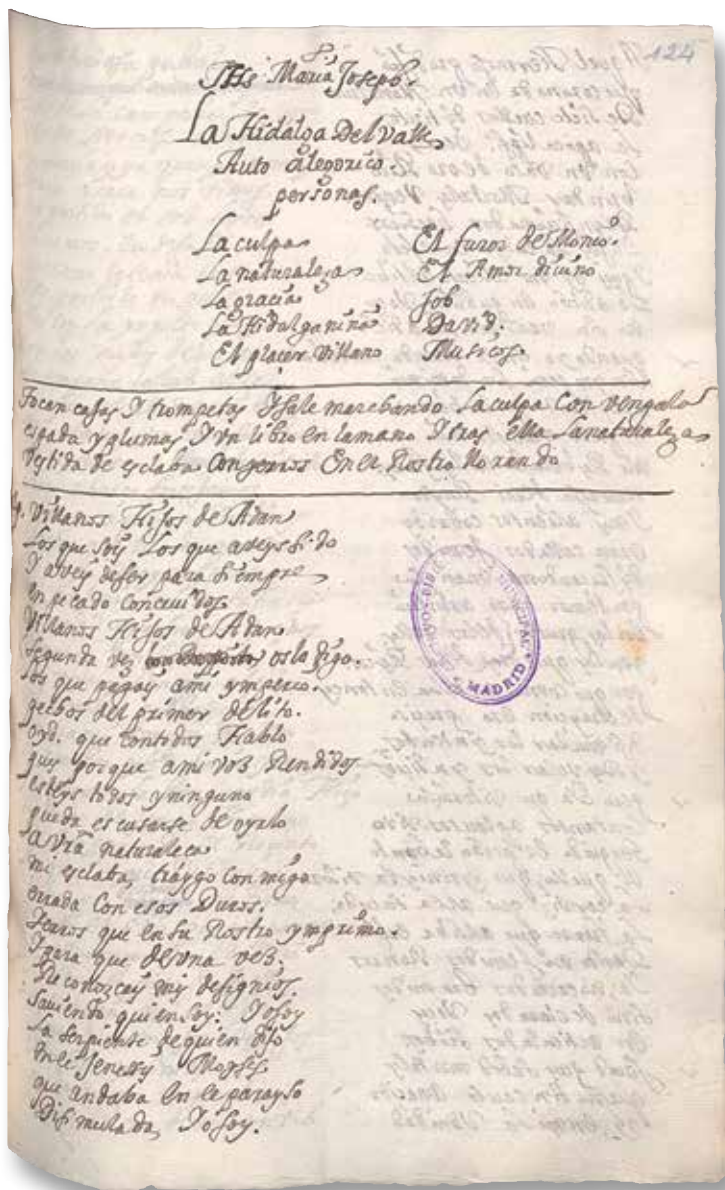 124
Jhs Maria Joseph.
La Hidalga del valle
Auto alegorico
personas.
La culpa El furor demonio.
La naturaleza El Amor diuino
La gracia Job
La Hidalga niña Dauid.
El placer Villano Musicos.
Tocan cajas y trompetas y sale marchando La culpa con vengala
espada y plumas y vn libro en la mano y tras ella La naturaleza
vestida de esclaba con yerros en el Rostro llorando
Villanos Hijos de Adan
los que soys los que aveys sido
y aveys de ser para siempre
en pecado conceuidos
Villanos Hijos de Adan
segunda vez os lo digo.
los que pagays a mi ymperio.
pechos del primer delito.
oyd. que con todos Hablo
pues porque a mi voz Rendidos
esteys todos y ninguno
pueda escusarse de oyrlo
a vra naturaleça
mi esclaba, traygo conmigo
errada con esos Duros.
yerros que en su Rostro ymprimo.
y para que de vna vez.
Reconozcays mis designios.
sauiendo quien soy: Yo soy
La serpiente de quien dijo
en el Jenesis Moyses
que andaba en el parayso
Disimulada, Yo soy.
BIBLIOTECA MUNICIPAL
MADRID